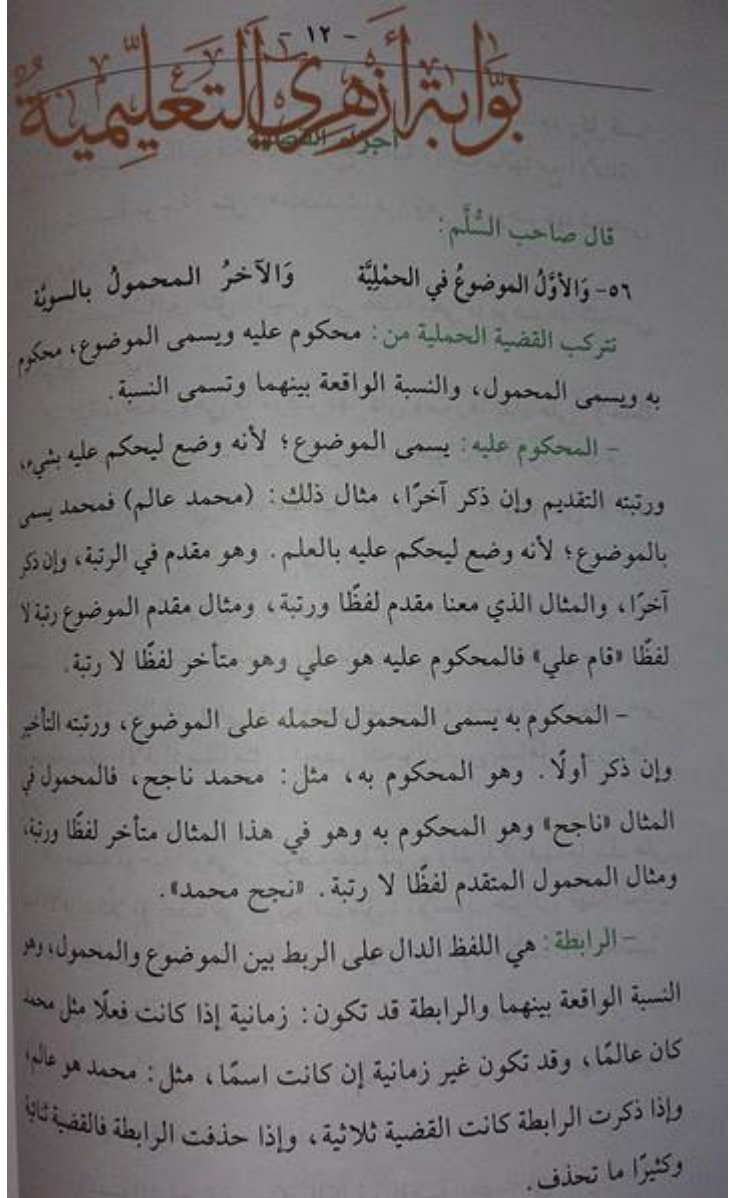 - ١٢ -
بوابة أزهري التعليمية
أجزاء القضية
قال صاحب السُّلَّم:
٥٦- وَالأوَّلُ الموضوعُ في الحمْلِيَّة وَالآخرُ المحمولُ بالسويَّة
تتركب القضية الحملية من: محكوم عليه ويسمى الموضوع، محكوم
به ويسمى المحمول، والنسبة الواقعة بينهما وتسمى النسبة.
- المحكوم عليه: يسمى الموضوع؛ لأنه وضع ليحكم عليه بشيء،
ورتبته التقديم وإن ذكر آخرًا، مثال ذلك: (محمد عالم) فمحمد يسمى
بالموضوع؛ لأنه وضع ليحكم عليه بالعلم. وهو مقدم في الرتبة، وإن ذكر
آخرًا، والمثال الذي معنا مقدم لفظًا ورتبة، ومثال مقدم الموضوع رتبة لا
لفظًا «قام علي» فالمحكوم عليه هو علي وهو متأخر لفظًا لا رتبة.
- المحكوم به يسمى المحمول لحمله على الموضوع، ورتبته التأخير
وإن ذكر أولًا. وهو المحكوم به، مثل: محمد ناجح، فالمحمول في
المثال «ناجح» وهو المحكوم به وهو في هذا المثال متأخر لفظًا ورتبة،
ومثال المحمول المتقدم لفظًا لا رتبة. «نجح محمد».
- الرابطة: هي اللفظ الدال على الربط بين الموضوع والمحمول، وهو
النسبة الواقعة بينهما والرابطة قد تكون: زمانية إذا كانت فعلًا مثل محمد
كان عالمًا، وقد تكون غير زمانية إن كانت اسمًا، مثل: محمد هو عالم،
وإذا ذكرت الرابطة كانت القضية ثلاثية، وإذا حذفت الرابطة فالقضية ثنائية
وكثيرًا ما تحذف.